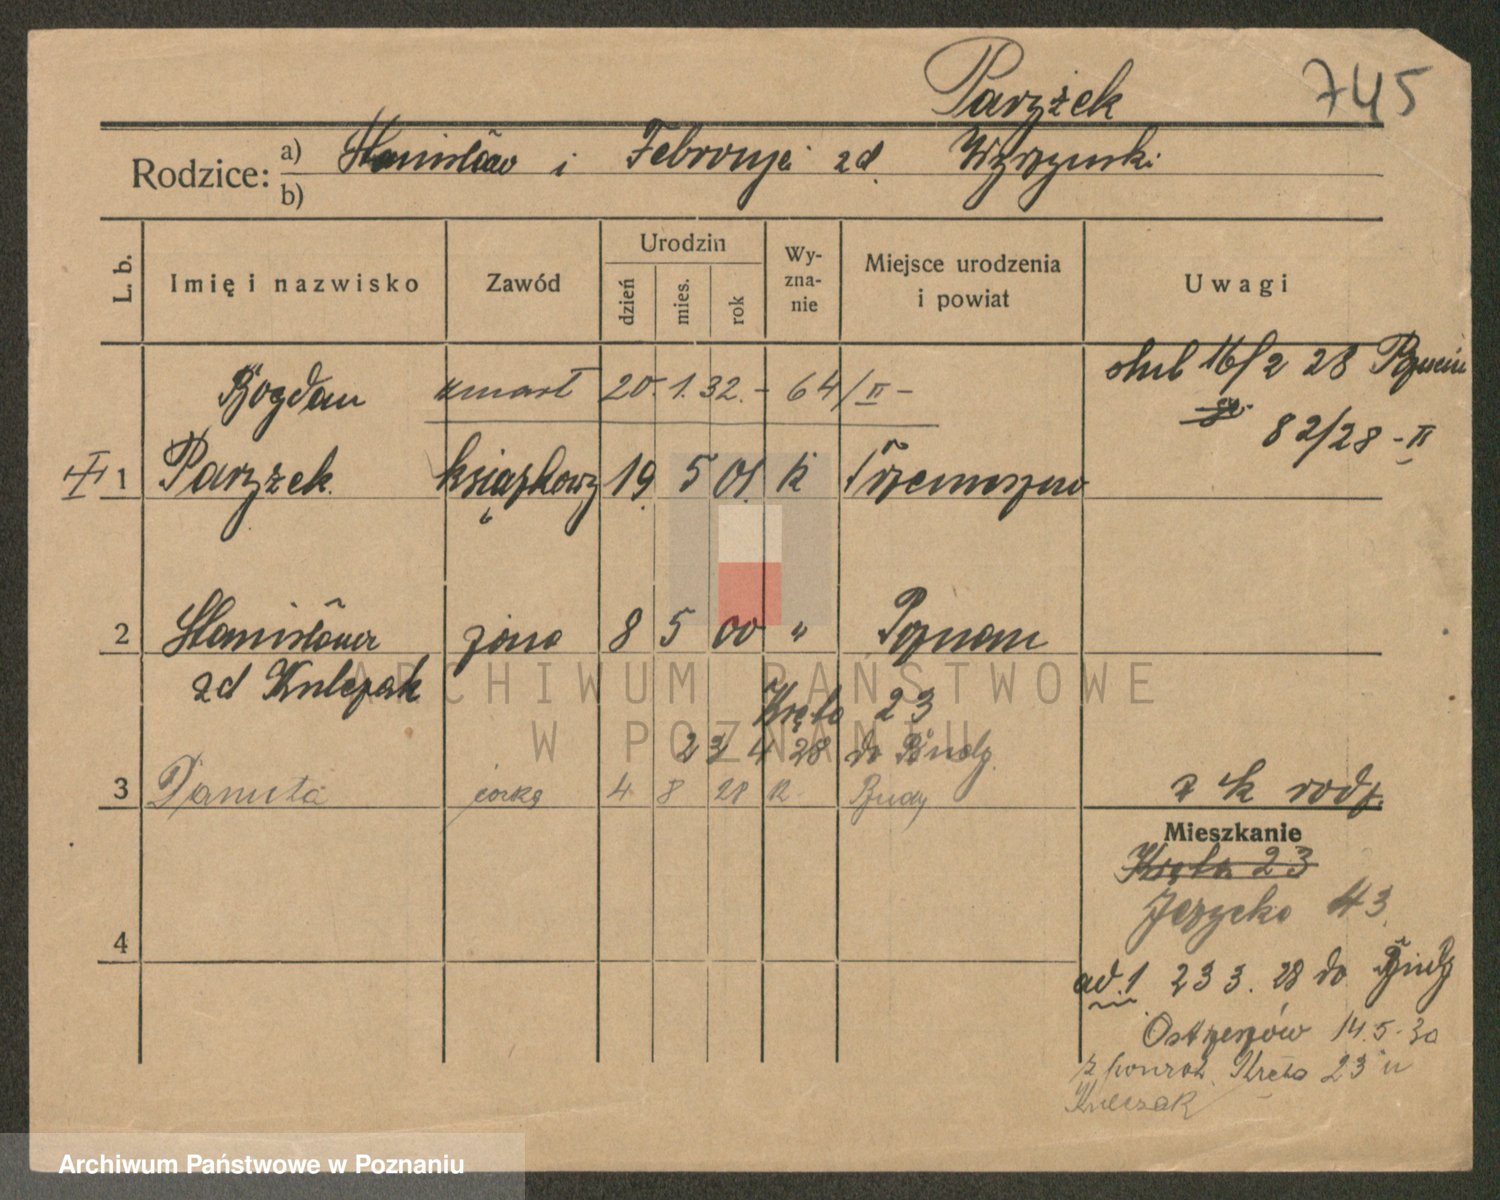 Paryżek 745
Rodzice: a) Stanisław i Febronji zd.
b)
L. b.
Imię i nazwisko
Zawód
Urodzin
dzień
mies.
rok
Wy-
zna-
nie
Miejsce urodzenia
i powiat
Uwagi
Bogdan umarł 20.1.32. - 64/II -
ślub 16/2 28
82/28 - II
1 Paryżek książkowy 19 5 01 k Trzemeszno
2 Stanisława żona 8 5 00 " Poznań
zd Kulczak
Kręta 23
23 4 28 do
3 Danuta córka 4 8 28 k
z k rodz.
Mieszkanie
Kręta 23
Jeżycka 43
4
ad. 1 23 3. 28 do
Ostrzeszów 14.5.30
z powrot. Kręta 23 u
Kulczak
ARCHIWUM PAŃSTWOWE
W POZNANIU
Archiwum Państwowe w Poznaniu